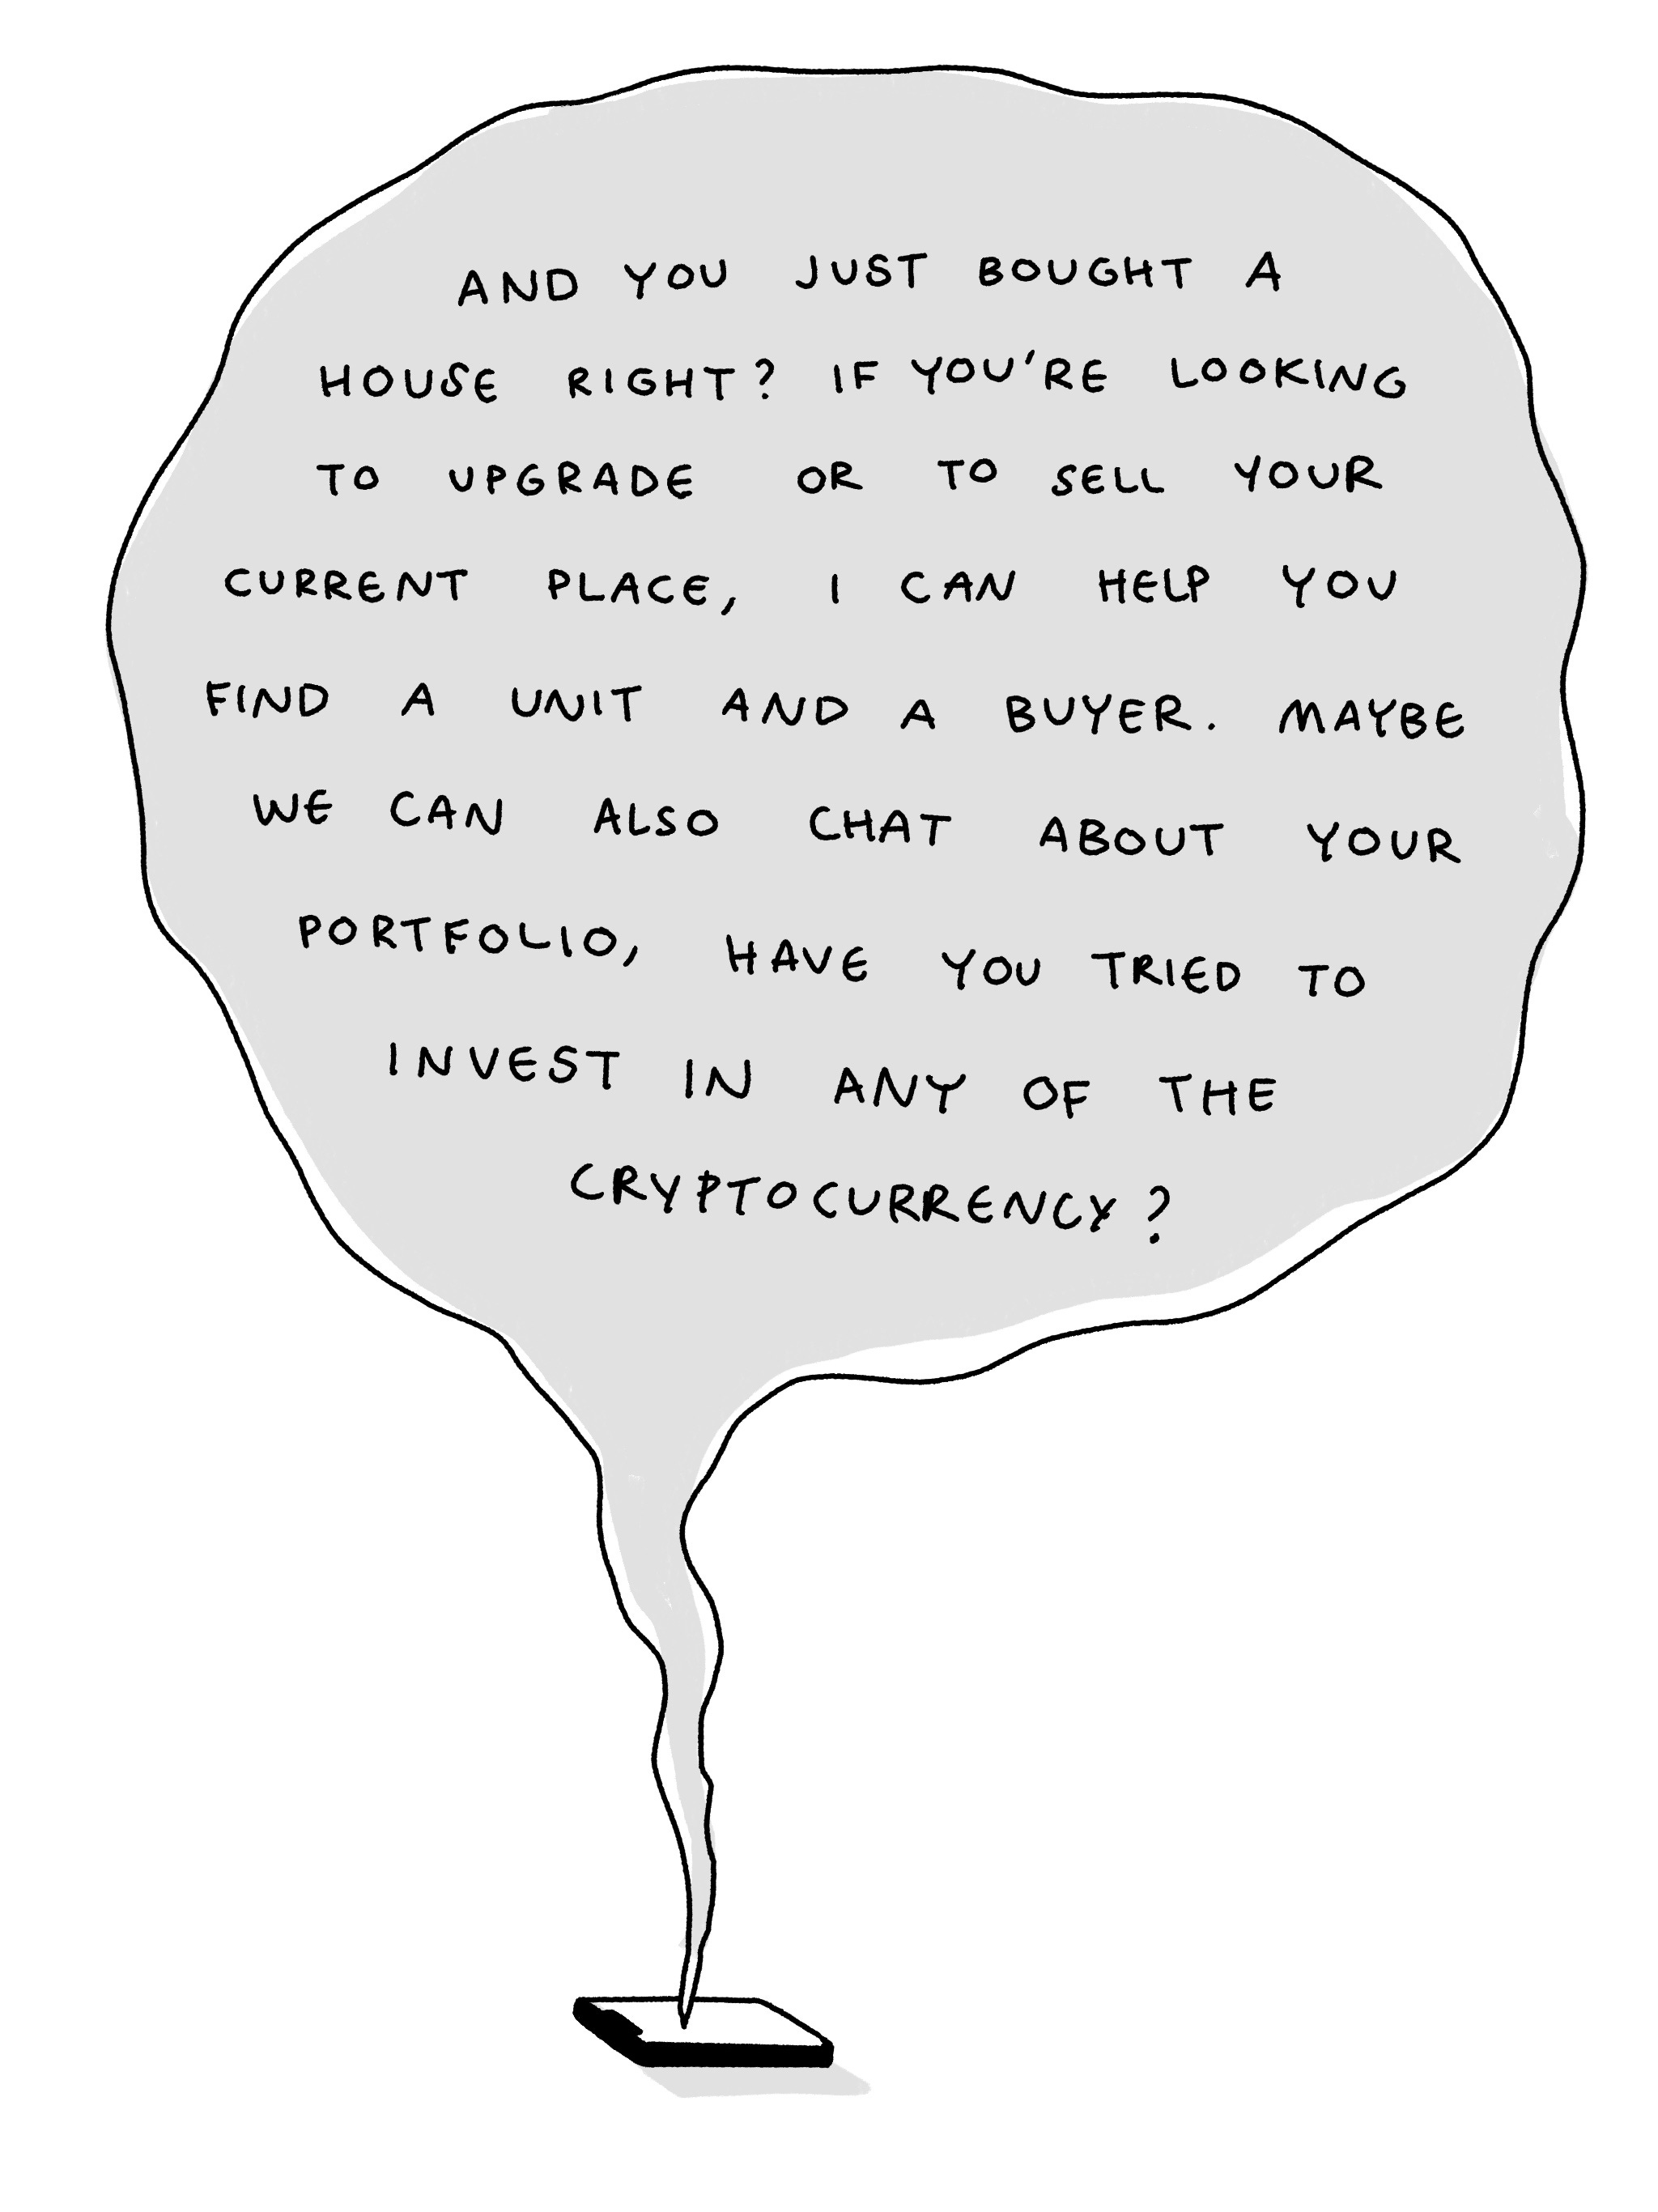 AND YOU JUST BOUGHT A
HOUSE RIGHT? IF YOU'RE LOOKING
TO UPGRADE OR TO SELL YOUR
CURRENT PLACE, I CAN HELP YOU
FIND A UNIT AND A BUYER. MAYBE
WE CAN ALSO CHAT ABOUT YOUR
PORTFOLIO, HAVE YOU TRIED TO
INVEST IN ANY OF THE
CRYPTOCURRENCY?